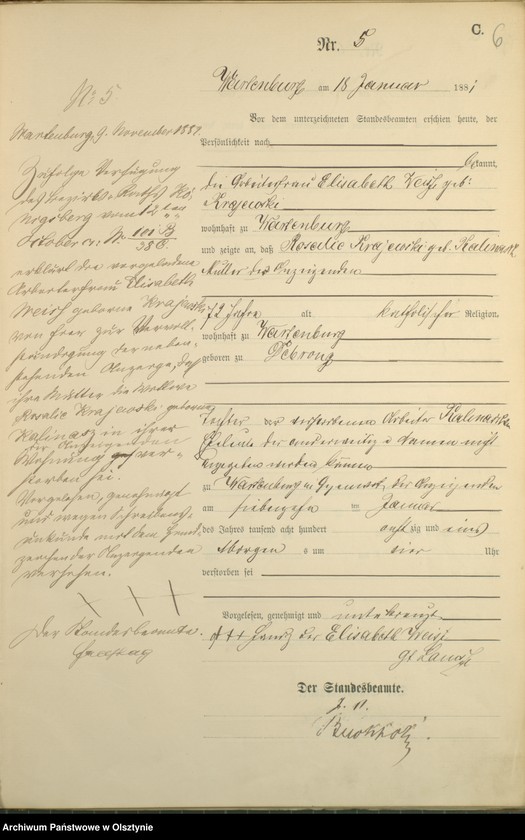 C.
6
Nr. 5
Wartenburg am 18 Januar 1881
Vor dem unterzeichneten Standesbeamten erschien heute, der
Persönlichkeit nach
bekannt,
die Arbeiterfrau Elisabeth geb:
Krajewski
wohnhaft zu Wartenburg
und zeigte an, daß Rosalie Krajewski geb. Kalinask
Mutter des Anzeigenden
72 Jahre alt katholischer Religion,
wohnhaft zu Wartenburg
geboren zu Debrong
Tochter der verstorbenen Arbeiter
Eheleute der anderweitig Namen nicht
angegeben werden können
zu Wartenburg in Gegenwart des Anzeigenden
am siebzehn ten Januar
des Jahres tausend acht hundert achtzig und eins
Morgens um vier Uhr
verstorben sei
Vorgelesen, genehmigt und unterkreuzt
+++ Handz der Elisabeth Weiß
Der Standesbeamte.
J. V.
No 5.
Wartenburg, 9. November 1887.
Zufolge Verfügung
des Bezirks
vom 12 ten
October cr. No
erklärt die vorgeladene
Arbeiterfrau Elisabeth
Weiß geborne Krajewski
von hier zur Vervoll-
ständigung der neben-
stehenden Anzeige, daß
ihre Mutter die Wittwe
Rosalie Krajewski geborene
Kalinask in ihrer
der Anzeigenden
Wohnung ver-
storben sei.
Vorgelesen, genehmigt
und wegen Schreibens-
unkunde mit dem Hand-
zeichen der Anzeigenden
versehen.
+++
Der Standesbeamte.
Archiwum Państwowe w Olsztynie